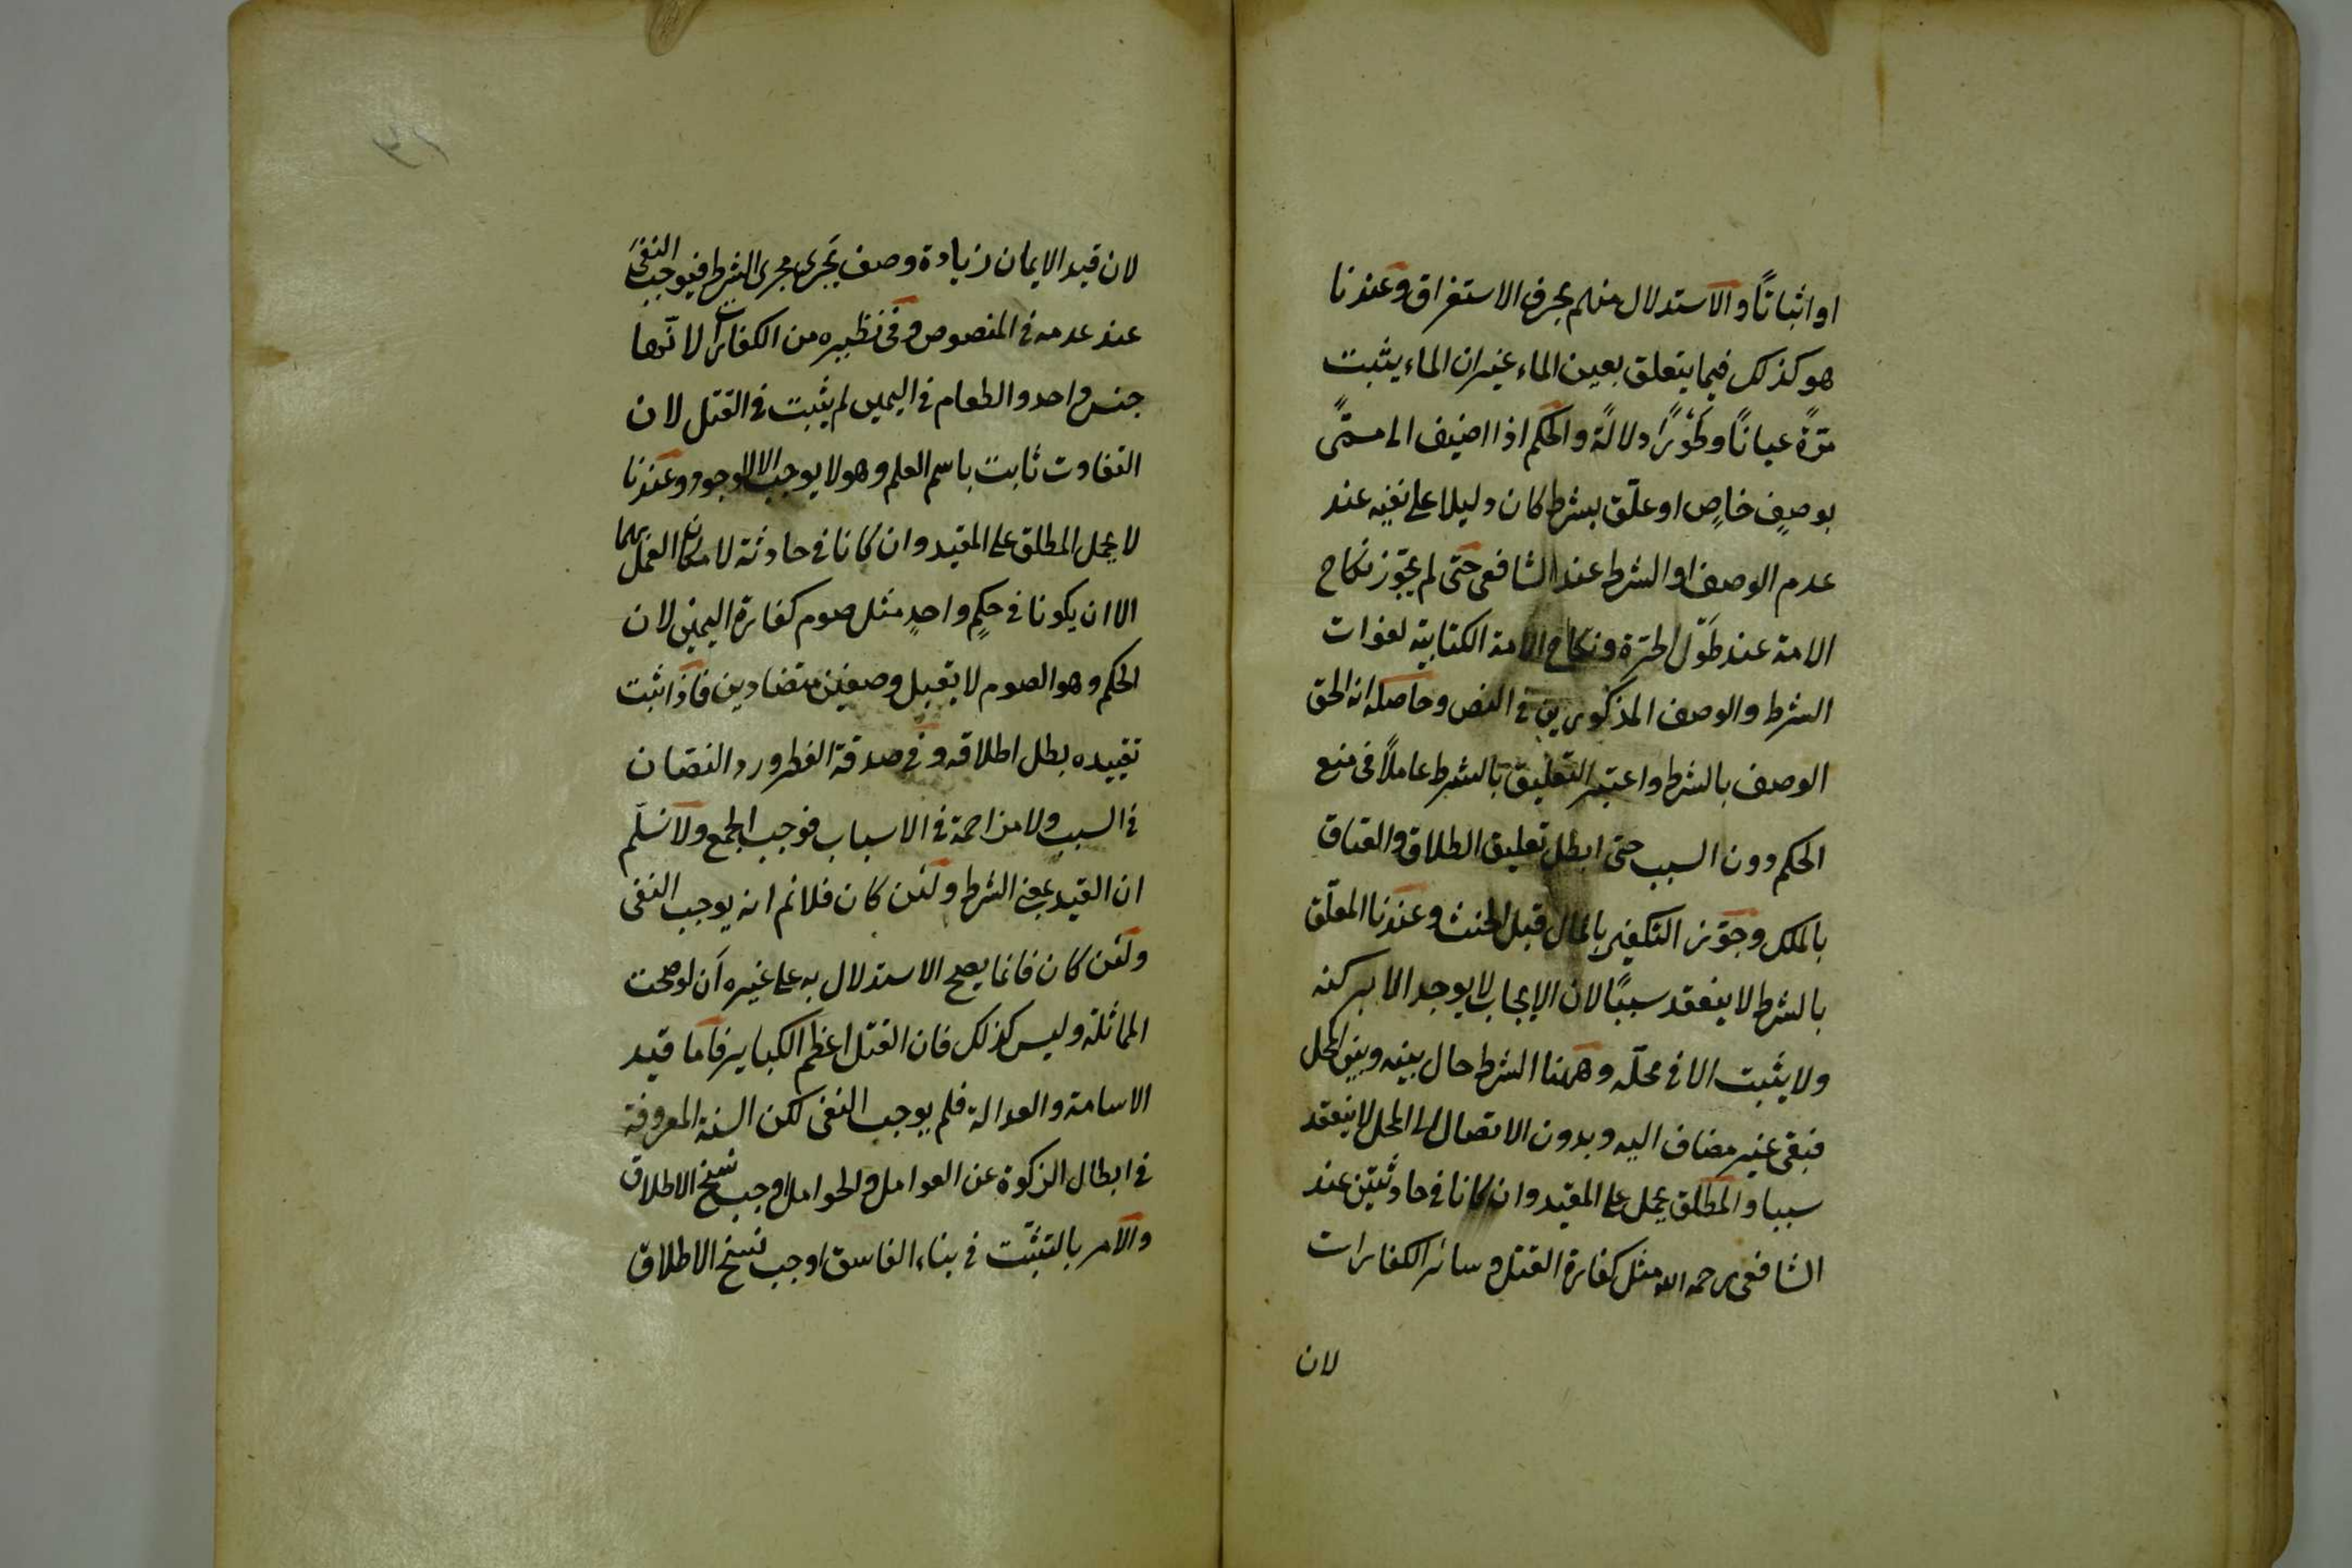 او اثباتًا والاستدلال منهم بحرف الاستغراق وعندنا
هو كذلك فيما يتعلق بعين الماء غير ان الماء يثبت
مرّةً عيانًا وطَوْرًا دلالةً والحكم اذا اضيف الى مسمّىً
بوصفٍ خاصٍ او علّق بشرط كان دليلا على نفيه عند
عدم الوصف او الشرط عند الشافعى حتى لم يجوّز نكاح
الامة عند طَوْل الحرّة ونكاح الامة الكتابية لفوات
الشرط والوصف المذكورين في النص وحاصله انه الحق
الوصف بالشرط واعتبر التعليق بالشرط عاملاً في منع
الحكم دون السبب حتى ابطل تعليق الطلاق والعتاق
بالملك وجوّز التكفير بالمال قبل الحنث وعندنا المعلّق
بالشرط لا ينعقد سببًا لان الايجاب لا يوجد الا بركنه
ولا يثبت الا في محلّه وههنا الشرط حال بينه وبين المحل
فبقى غير مضاف اليه وبدون الاتصال الى المحل لا ينعقد
سببا والمطلق يحمل على المقيد وان كانا في حادثتين عند
الشافعى رحمه الله مثل كفارة القتل وسائر الكفارات
لان
لان قيد الايمان زيادة وصف يَجرى مجرى الشرط فيوجب النفىَ
عند عدمه في المنصوص وفى نظيره من الكفارات لانّها
جنس واحد والطعام في اليمين لم يثبت في القتل لان
التفاوت ثابت باسم العلم وهو لا يوجب الا الوجود وعندنا
لا يحمل المطلق على المقيد وان كانا في حادثة لامكان العمل بهما
الا ان يكونا في حكمٍ واحدٍ مثل صوم كفارة اليمين لان
الحكم وهو الصوم لا يقبل وصفين متضادين فاذا ثبت
تقييده بطل اطلاقه وفي صدقة الفطر ورد النصان
في السبب ولا مزاحمة في الاسباب فوجب الجمع ولا نسلّم
ان القيد بمعنى الشرط ولئن كان فلانم انه يوجب النفى
ولئن كان فانما يصح الاستدلال به على غيره أن لو صحت
المماثلة وليس كذلك فان القتل اعظم الكباير فاما قيد
الاسامة والعدالة فلم يوجب النفى لكن السنة المعروفة
في ابطال الزكوة عن العوامل والحوامل اوجب نسخ الاطلاق
والامر بالتثبّت في بناء الفاسق اوجب نسخ الاطلاق